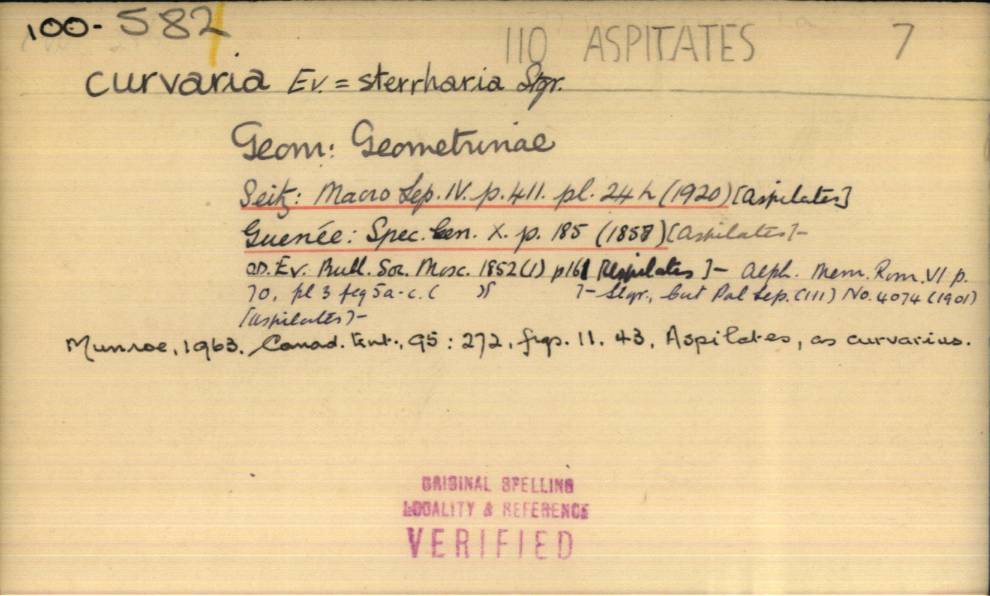 100-582
110 ASPITATES 7
curvaria Ev. = sterrharia Stgr.
Geom: Geometrinae
Seitz: Macro Lep. IV. p. 411. pl. 24 h (1920) [Aspilates]
Guenée: Spec. Gen. X. p. 185 (1858) [Aspilates]-
OD. Ev. Bull. Soc. Mosc. 1852(1) p161 Aspilates ]- Alph. Mem. Rom. VI p.
70, pl 3 fig 5a-c. ( )( ]- Stgr., Cat Pal Lep. (111) No. 4074 (1901)
[Aspilates]-
Munroe, 1963. Canad. Ent., 95 : 272, figs. 11, 43, Aspilates, as curvarius.
ORIGINAL SPELLING
LOCALITY & REFERENCE
VERIFIED